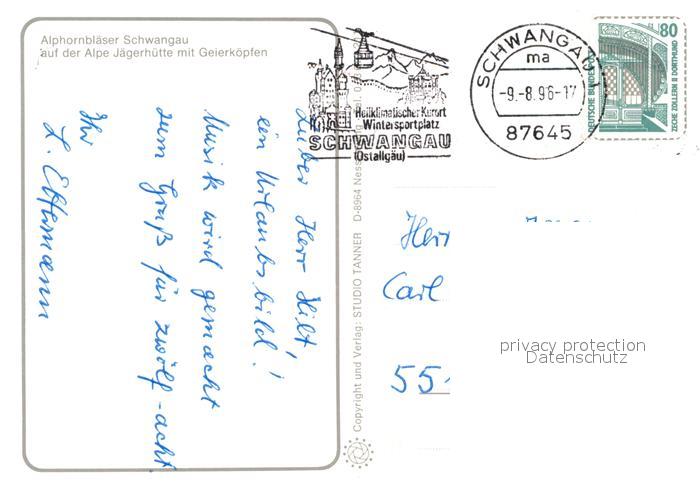 Alphornbläser Schwangau
auf der Alpe Jägerhütte mit Geierköpfen
Lieber Herr Hilt,
ein Urlaubsbild!
Musik wird gemacht
zum Gruß für zwölf-acht.
Ihr
L.
Copyright und Verlag: STUDIO TANNER D-8964 Ness
Heilklimatischer Kurort
Wintersportplatz
SCHWANGAU
(Ostallgäu)
SCHWANGAU
ma
-9.-8.96-17
87645
80
DEUTSCHE BUNDESPOST
ZECHE ZOLLERN II DORTMUND
Herr
Carl
55
privacy protection
Datenschutz